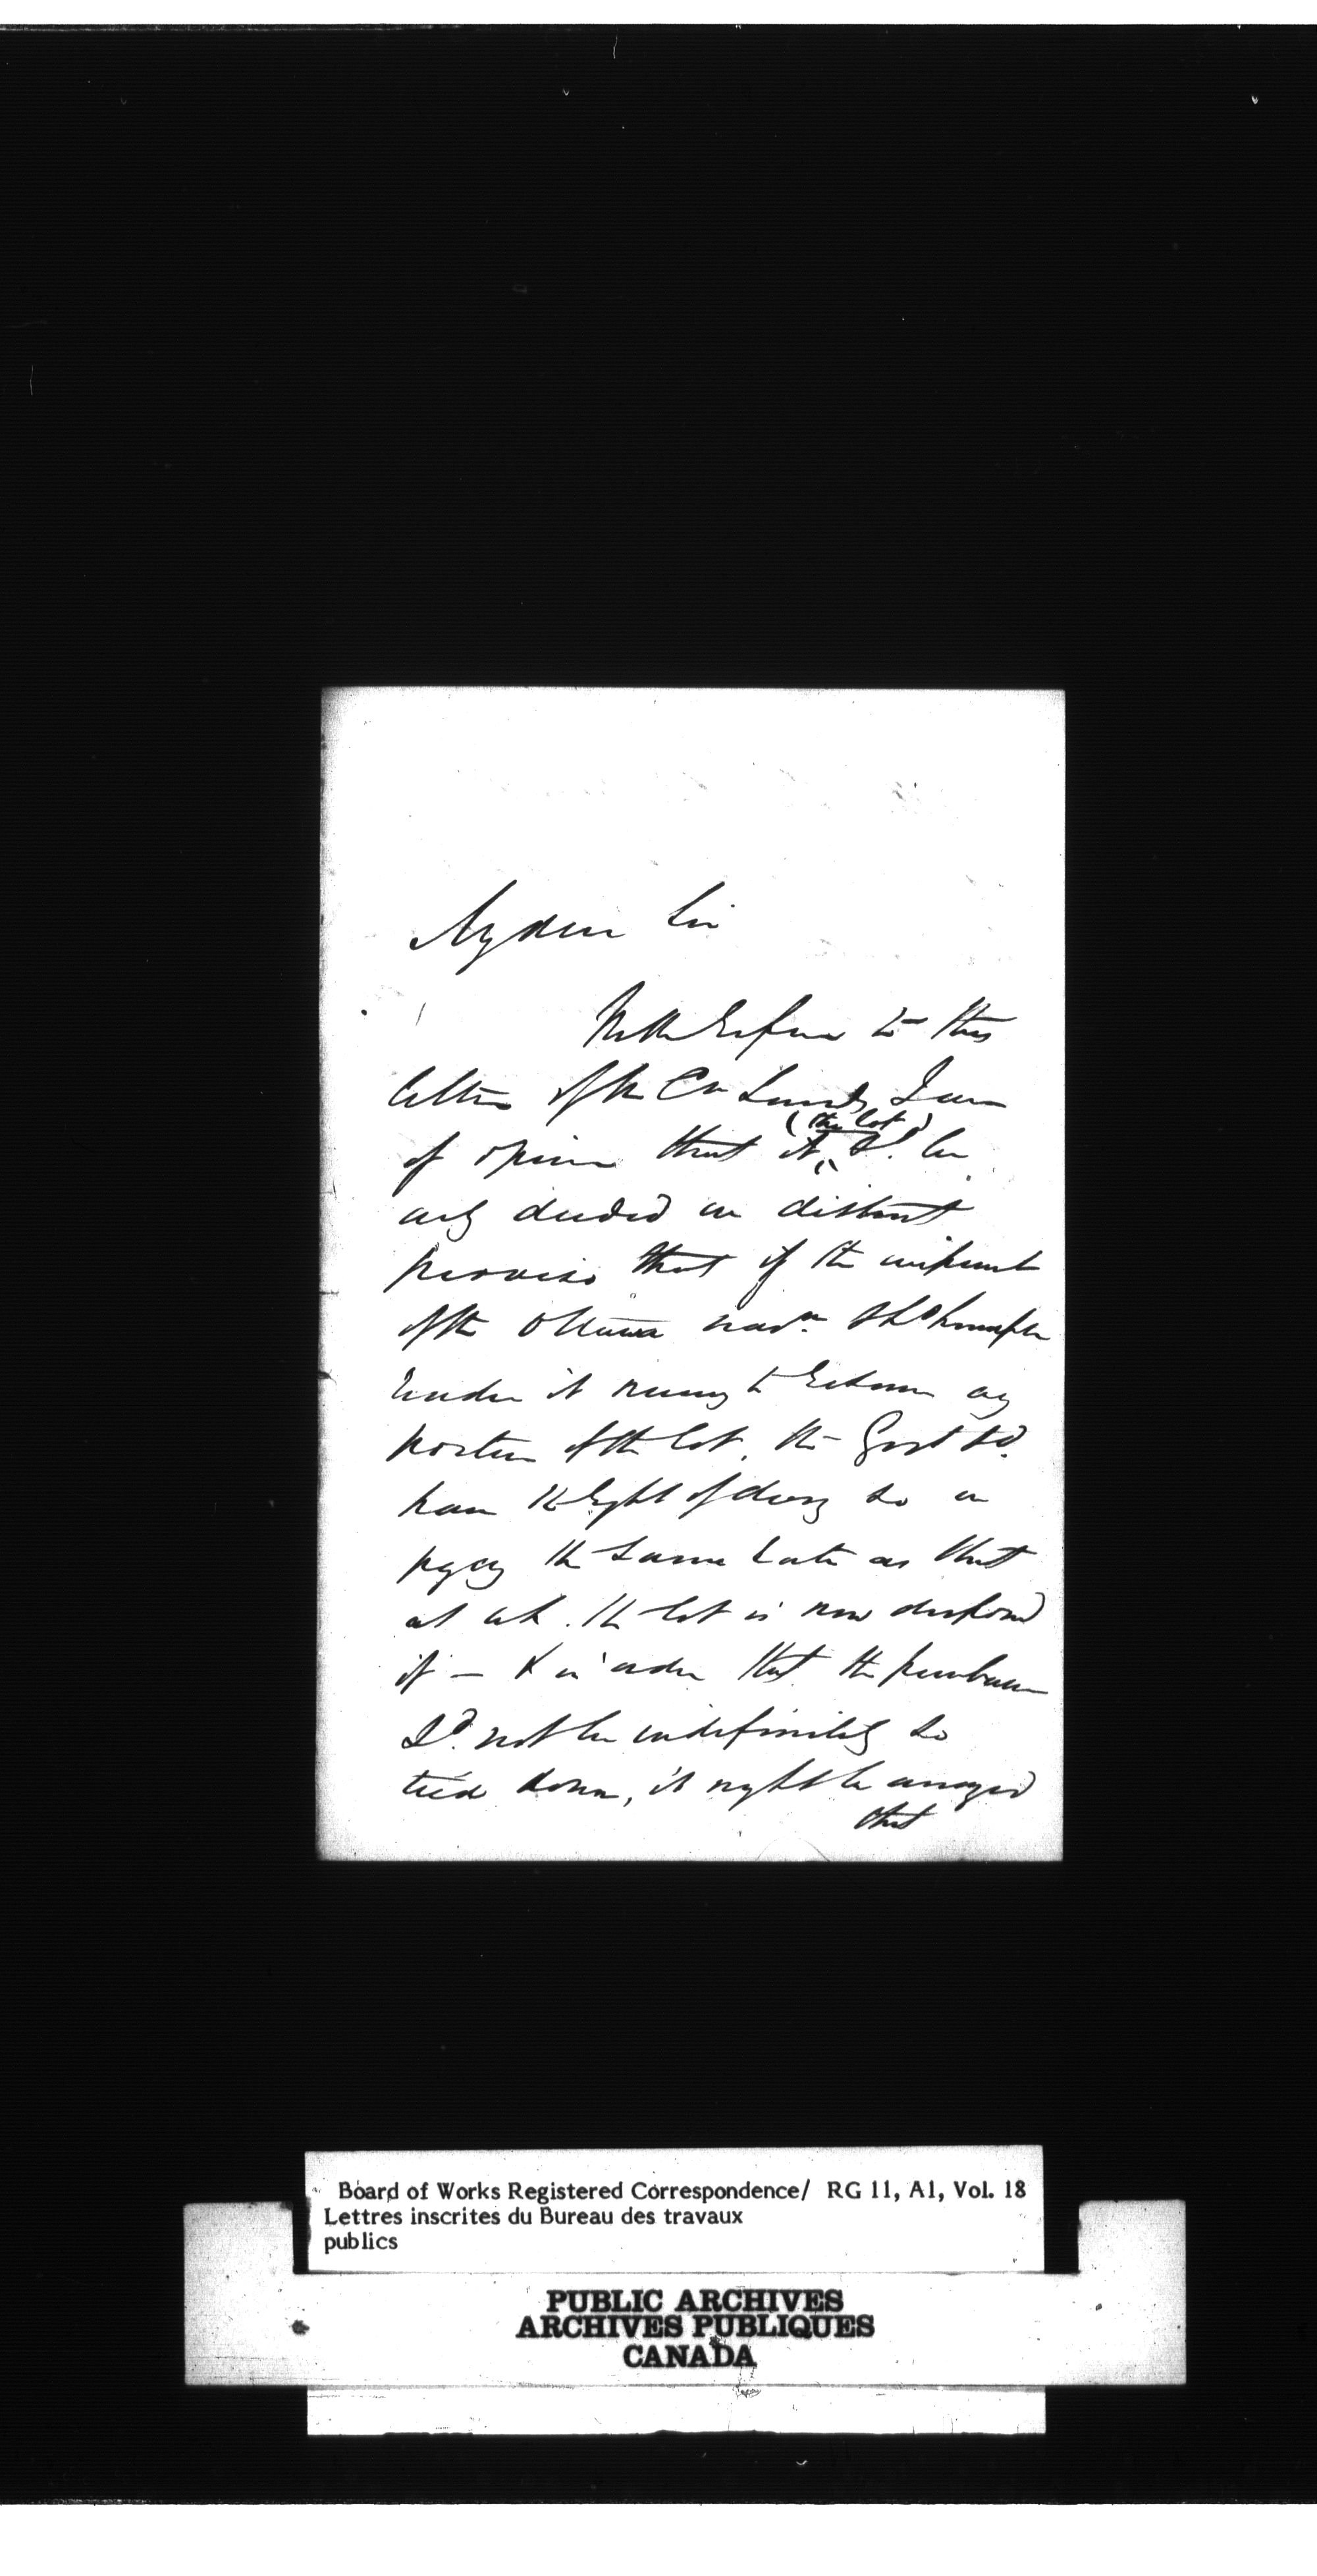 My dear Sir
With refce to this
letter of the Cr Lands, I am
of opinion that it (the lot) sd. be
only deeded on distinct
proviso that if the improvemt
of the Ottawa navn. shd hereafter
render it necy to resume any
portion of the lot, the Govt sd.
have the right of doing so on
paying the same rate as that
at wh. the lot is now disposed
of — & in order that the purchaser
sd. not be indefinitely so
tied down, it might be arranged
that
Board of Works Registered Correspondence/ RG 11, A1, Vol. 18
Lettres inscrites du Bureau des travaux
publics
PUBLIC ARCHIVES
ARCHIVES PUBLIQUES
CANADA